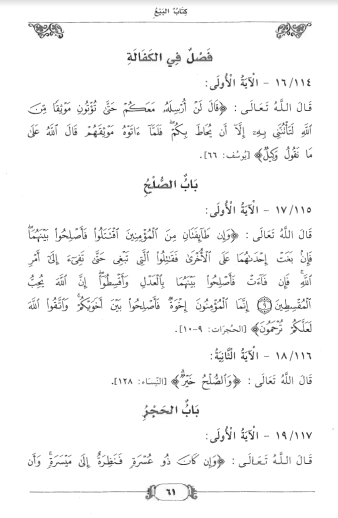 كِتَابُ البَيْعِ
فَصْلٌ فِي الكَفَالَةِ
١٦/١١٤ - الْآيَةُ الْأُولَى:
قَالَ اللَّهُ تَعَالَى: ﴿قَالَ لَنْ أُرْسِلَهُۥ مَعَكُمْ حَتَّىٰ تُؤْتُونِ مَوْثِقًا مِّنَ
ٱللَّهِ لَتَأْتُنَّنِى بِهِۦٓ إِلَّآ أَن يُحَاطَ بِكُمْ ۖ فَلَمَّآ ءَاتَوْهُ مَوْثِقَهُمْ قَالَ ٱللَّهُ عَلَىٰ
مَا نَقُولُ وَكِيلٌ﴾ [يُوسُف: ٦٦].
بَابُ الصُّلْحِ
١٧/١١٥ - الْآيَةُ الْأُولَى:
قَالَ اللَّهُ تَعَالَى: ﴿وَإِن طَآئِفَتَانِ مِنَ ٱلْمُؤْمِنِينَ ٱقْتَتَلُوا۟ فَأَصْلِحُوا۟ بَيْنَهُمَا ۖ
فَإِنۢ بَغَتْ إِحْدَىٰهُمَا عَلَى ٱلْأُخْرَىٰ فَقَـٰتِلُوا۟ ٱلَّتِى تَبْغِى حَتَّىٰ تَفِىٓءَ إِلَىٰٓ أَمْرِ
ٱللَّهِ ۚ فَإِن فَآءَتْ فَأَصْلِحُوا۟ بَيْنَهُمَا بِٱلْعَدْلِ وَأَقْسِطُوٓا۟ ۖ إِنَّ ٱللَّهَ يُحِبُّ
ٱلْمُقْسِطِينَ ۝٩ إِنَّمَا ٱلْمُؤْمِنُونَ إِخْوَةٌ فَأَصْلِحُوا۟ بَيْنَ أَخَوَيْكُمْ ۚ وَٱتَّقُوا۟ ٱللَّهَ
لَعَلَّكُمْ تُرْحَمُونَ﴾ [الحُجرَات: ٩-١٠].
١٨/١١٦ - الْآيَةُ الثَّانِيَةُ:
قَالَ اللَّهُ تَعَالَى: ﴿وَٱلصُّلْحُ خَيْرٌ﴾ [النِّسَاء: ١٢٨].
بَابُ الحَجْرُ
١٩/١١٧ - الْآيَةُ الْأُولَى:
قَالَ اللَّهُ تَعَالَى: ﴿وَإِن كَانَ ذُو عُسْرَةٍ فَنَظِرَةٌ إِلَىٰ مَيْسَرَةٍ ۚ وَأَن
٦١